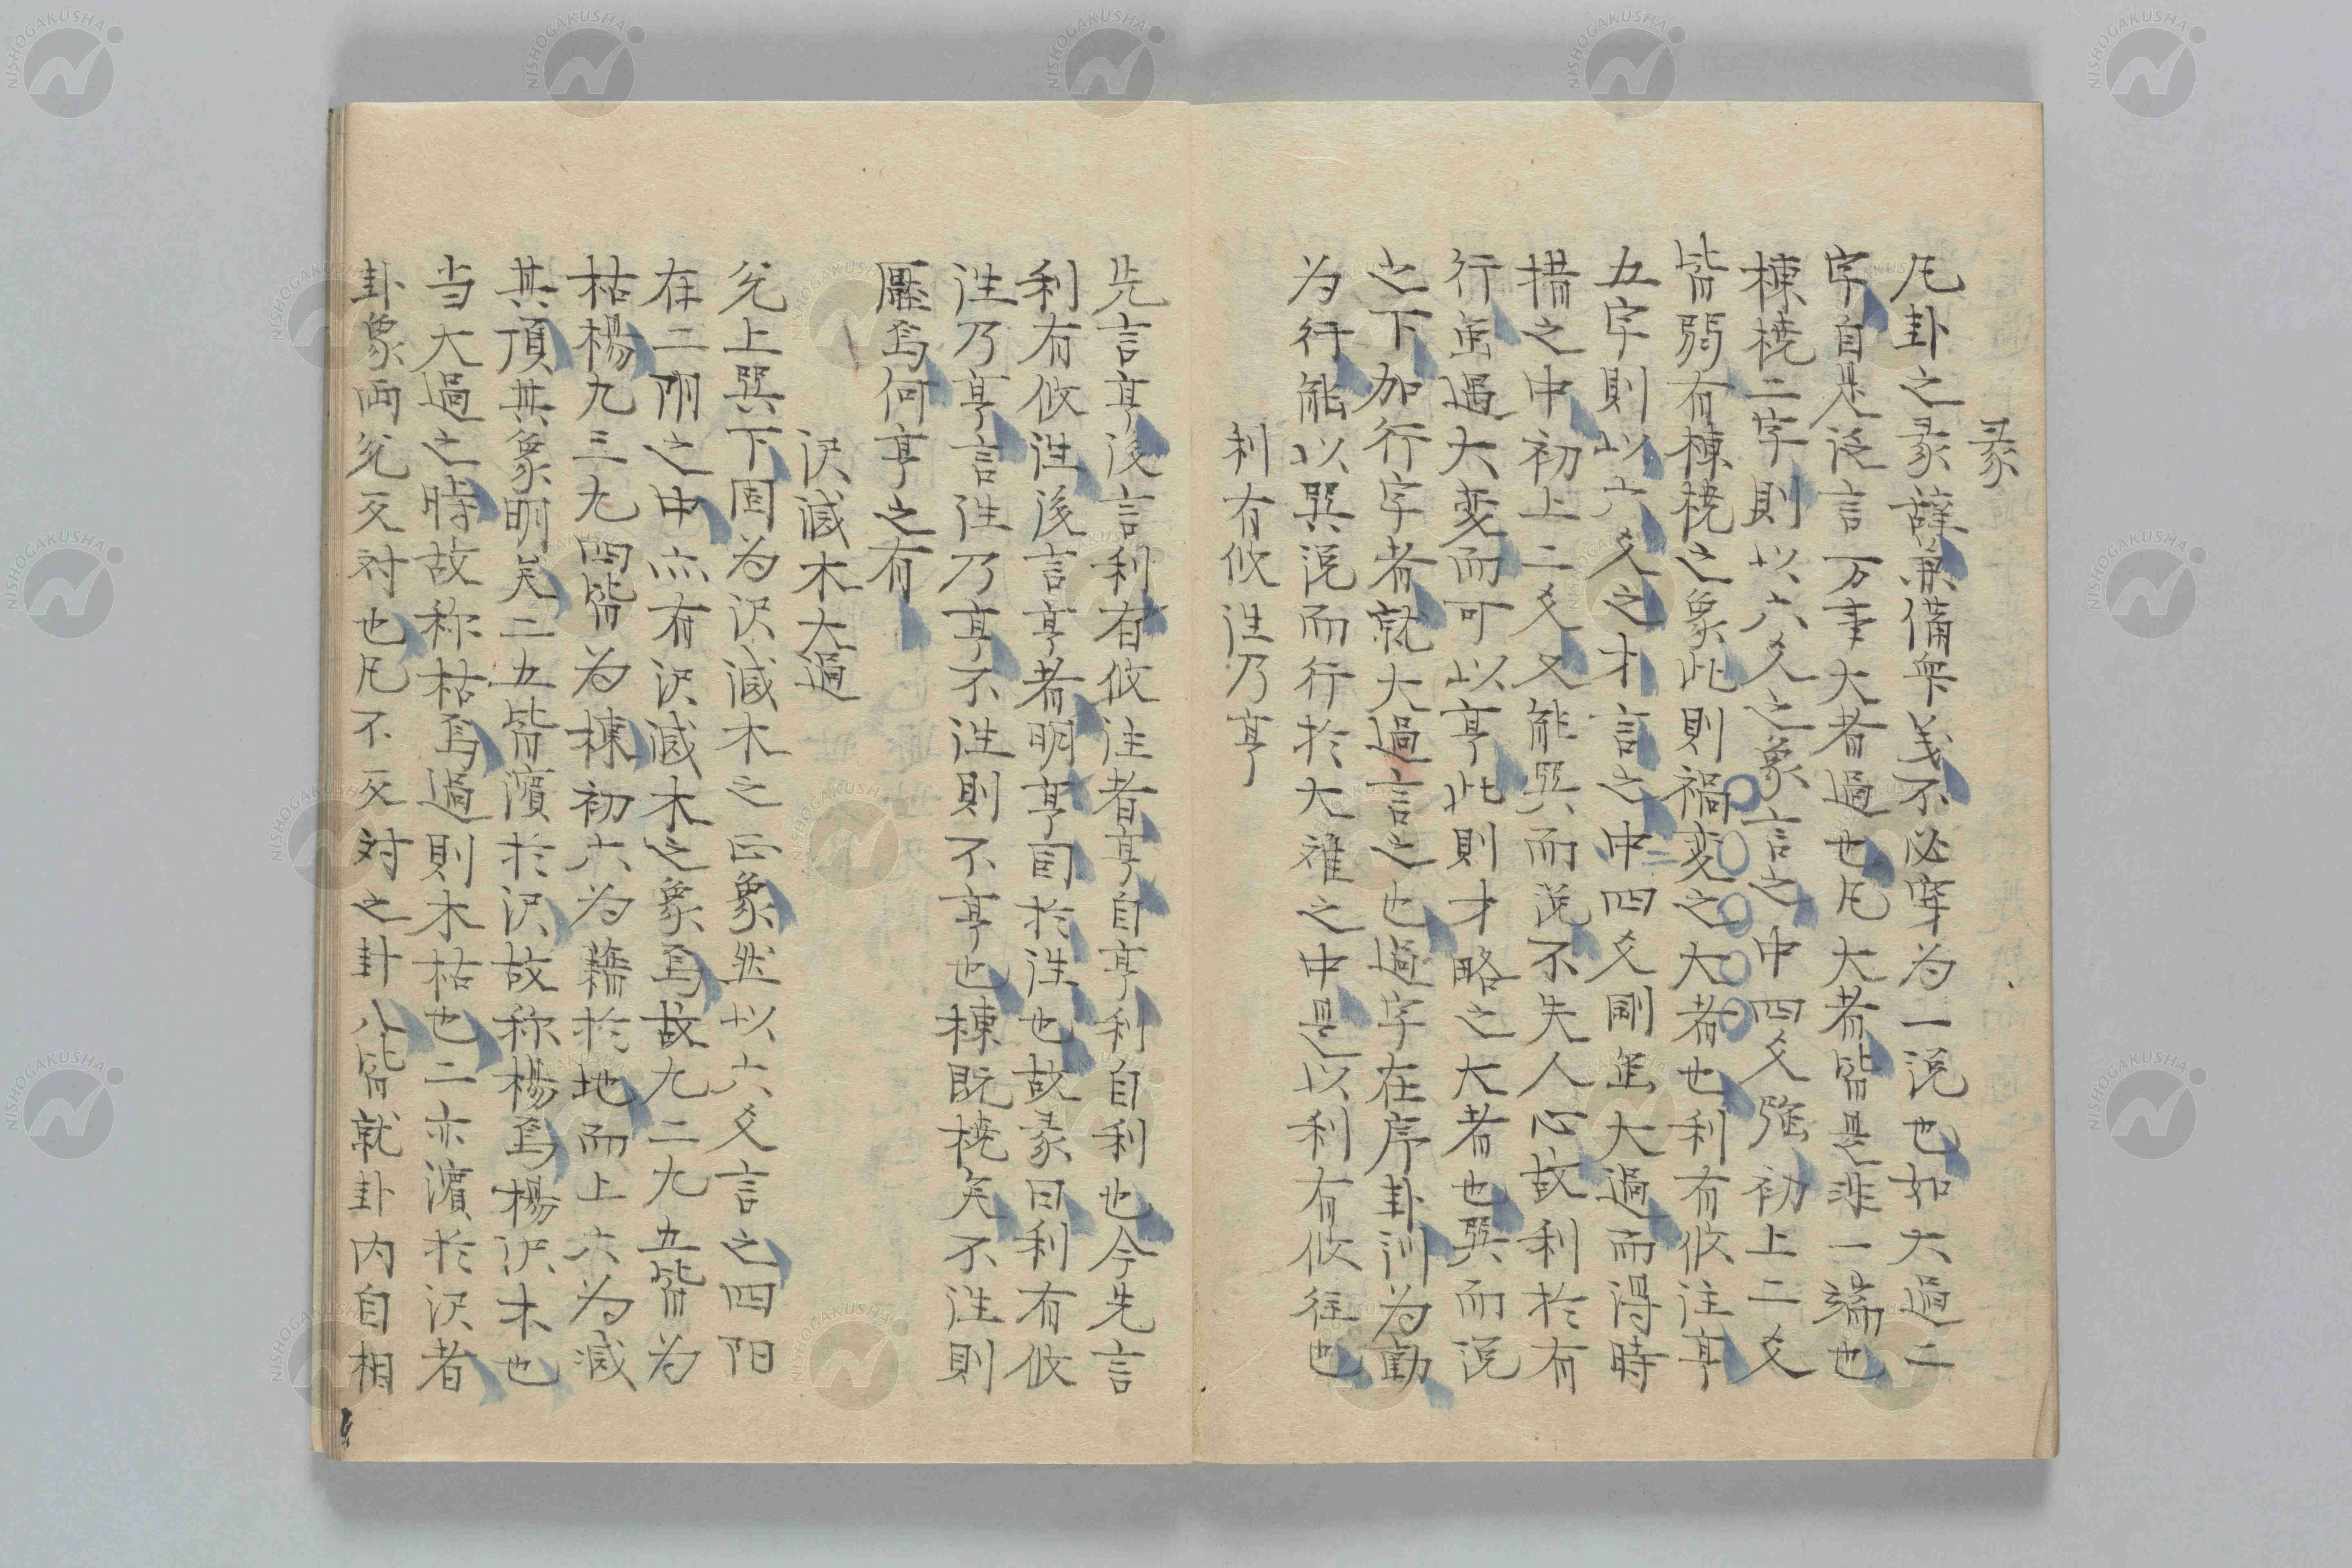 彖
凡卦之彖辞兼備衆义不必穿为一説也如大過二
字自是泛言万事大者過也凡大者皆是非一端也
棟橈二字則以六爻之象言之中四爻强初上二爻
皆弱有棟橈之象此則禍变之大者也利有攸往亨
五字則以六爻之才言之中四爻剛虽大過而得時
措之中初上二爻又能巽而説不失人心故利於有
行虽過大变而可以亨此則才略之大者也巽而説
之下加行字者就大過言之也過字在序卦訓为動
为行能以巽説而行於大難之中是以利有攸往也
利有攸往乃亨
先言亨後言利有攸往者亨自亨利自利也今先言
利有攸往後言亨者明亨因於往也故彖曰利有攸
往乃亨言往乃亨不往則不亨也棟既橈矣不往則
壓焉何亨之有
沢滅木大過
兌上巽下固为沢滅木之正象然以六爻言之四阳
在二阴之中亦有沢滅木之象焉故九二九五皆为
枯楊九三九四皆为棟初六为藉於地而上六为滅
其頂其象明矣二五皆濱於沢故称楊焉楊沢木也
当大過之時故称枯焉過則木枯也二亦濱於沢者
卦象両兌反対也凡不反対之卦八皆就卦内自相
NISHOGAKUSHA